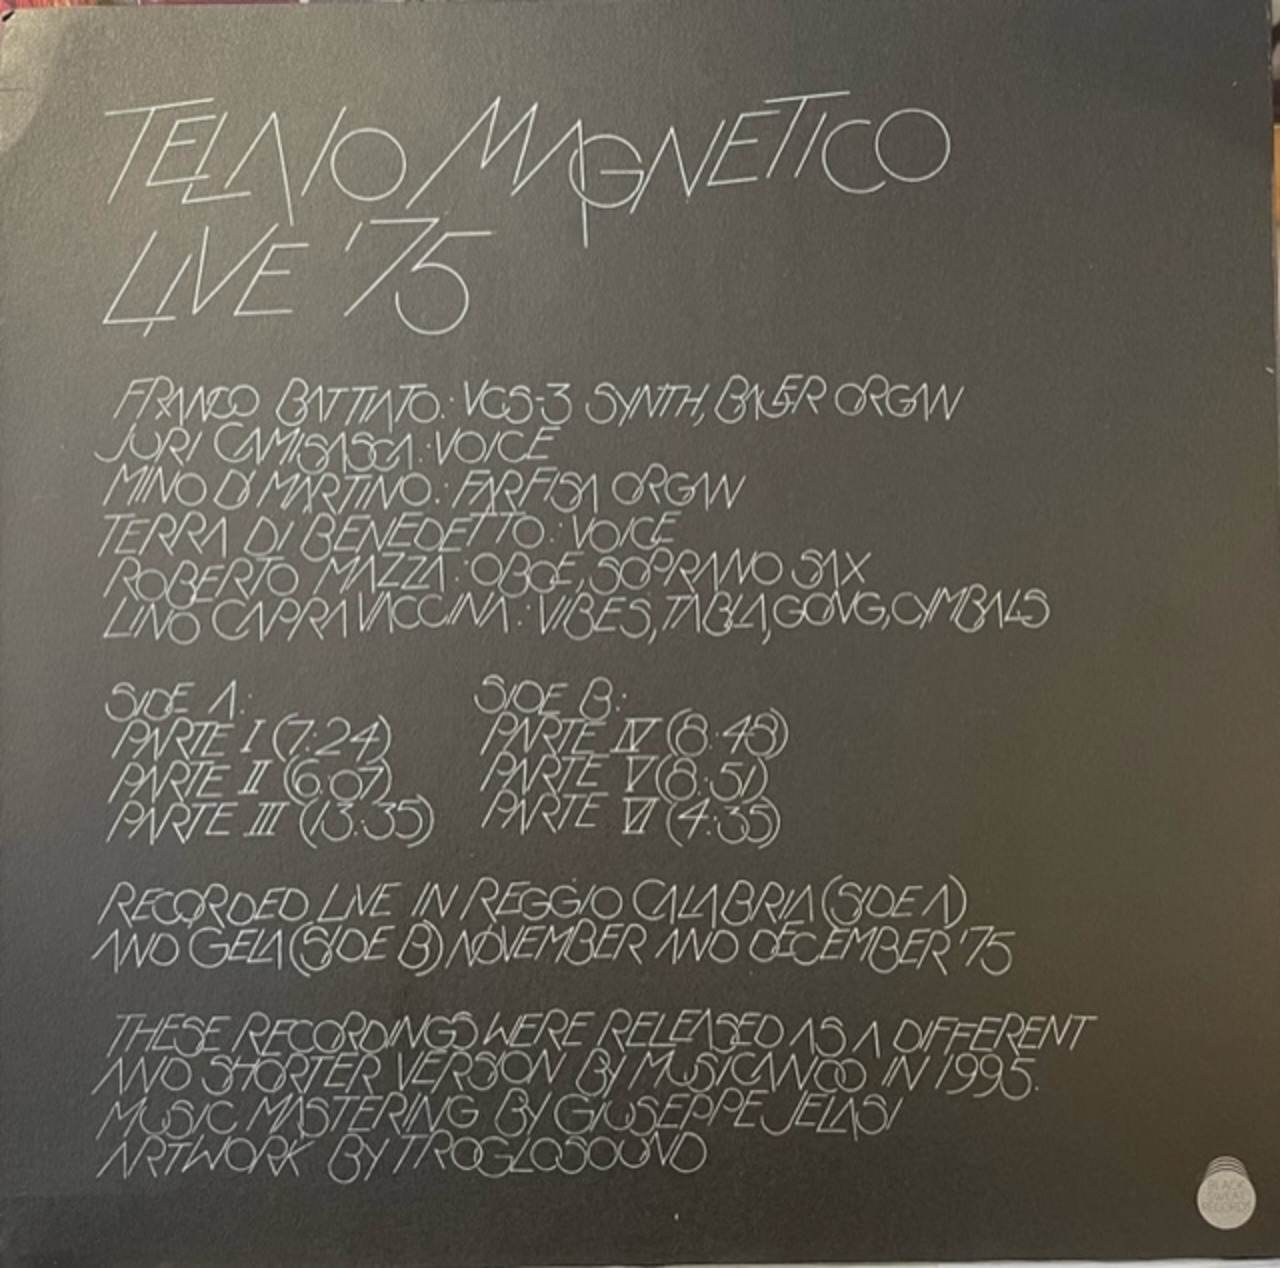 TELAIO MAGNETICO
LIVE '75
FRANCO BATTIATO: VCS-3 SYNTH, BAUER ORGAN
JURI CAMISASCA: VOICE
MINO DI MARTINO: FARFISA ORGAN
TERRA DI BENEDETTO: VOICE
ROBERTO MAZZA: OBOE, SOPRANO SAX
LINO CAPRA VACCINA: VIBES, TABLA, GONG, CYMBALS
SIDE A:
PARTE I (7:24)
PARTE II (6:07)
PARTE III (13:35)
SIDE B:
PARTE IV (8:48)
PARTE V (8:51)
PARTE VI (4:35)
RECORDED LIVE IN REGGIO CALABRIA (SIDE A)
AND GELA (SIDE B) NOVEMBER AND DECEMBER '75
THESE RECORDINGS WERE RELEASED AS A DIFFERENT
AND SHORTER VERSION BY MUSICANDO IN 1995.
MUSIC MASTERING BY GIUSEPPE IELASI
ARTWORK BY TROGLOSOUND
BLACK
SWEAT
RECORDS